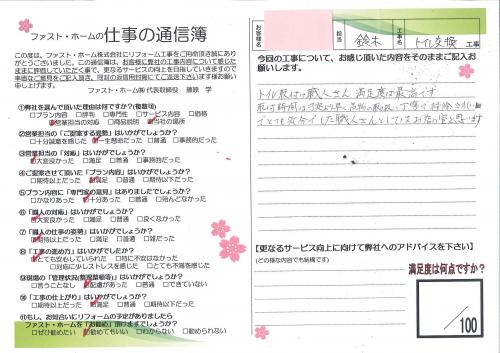 ファスト・ホームの仕事の通信簿
この度は、ファスト・ホーム株式会社にリフォーム工事をご用命頂き誠にあり
がとうございました。この通信簿は、お客様に弊社の工事内容について感じた
ままに評価していただく事で、更なるサービスの向上を目指していきますので
率直なご意見をご記入頂き、同封の返信用封筒にてご返送下さいます様お願い
申し上げます。
ファスト・ホーム㈱ 代表取締役 藤原 学
①弊社を選んで頂いた理由は何ですか?(複数可)
□プラン内容 □評判 □専門性 □サービス内容 □価格
□営業担当の対応 □商品説明 □当社の場所
②営業担当の「ご要望する姿勢」はいかがでしょうか?
□十分誠意を感じた □一生懸命だった □普通 □事務的だった
③営業担当の「対応」はいかがでしょうか?
□大変良かった □満足 □普通 □事務的だった
④ご提案させて頂いた「プラン内容」はいかがでしょうか?
□期待以上だった □満足 □普通 □期待以下だった
⑤プラン内容に「専門家の意見」はありましたでしょうか?
□かなりあった □十分あった □普通 □殆んどなかった
⑥「職人の対応」はいかがでしょうか?
□大変良かった □満足 □普通 □良くなかった
⑦「職人の仕事の姿勢」はいかがでしょうか?
□期待以上だった □満足 □普通 □雑だった
⑧「工事の進め方」はいかがでしょうか?
□とても安心していられた □特に不安はなかった
□対応に少しストレスを感じた □とても不満を感じた
⑨現場の「管理状況(整理整頓等)」はいかがでしょうか?
□言うことなし □配慮があった □普通 □できていない
⑩「工事の仕上がり」はいかがでしょうか?
□期待以上だった □満足 □普通 □期待以下だった
⑪もし、お知合いにリフォームの予定がありましたら
ファスト・ホームを「お勧め」頂けますでしょうか?
□ぜひ勧めたい □勧めてもいい □わからない □勧められない
お客様名
担当
鈴木
工事名
トイレ交換
工事
今回の工事について、お感じ頂いた内容をそのままご記入お
願いします。
トイレ取付け職人さん 満足度は最高です
【更なるサービス向上に向けて弊社へのアドバイスを下さい】
(どの様な内容でも結構です)
満足度は何点ですか?
/100